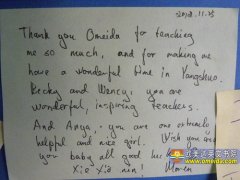 2012.11.25
Thank you Omeida for teaching
me so much, and for making me
have a wonderful time in Yangshuo.
Becky and Wency, you are
wonderful, inspiring teachers.
And Anya, you are one extremely
helpful and nice girl. Wish you and
you baby all good
Xie Xie nin!
www.omeida.com